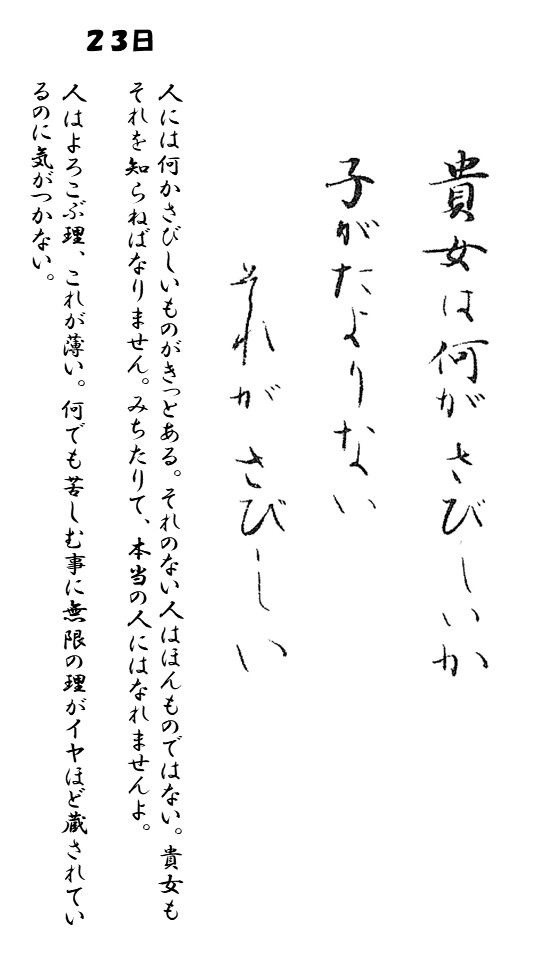 23日
貴女は何がさびしいか
子がたよりない
それがさびしい
人には何かさびしいものがきっとある。それのない人はほんものではない。貴女も
それを知らねばなりません。みちたりて、本当の人にはなれませんよ。
人はよろこぶ理、これが薄い。何でも苦しむ事に無限の理がイヤほど蔵されてい
るのに気がつかない。